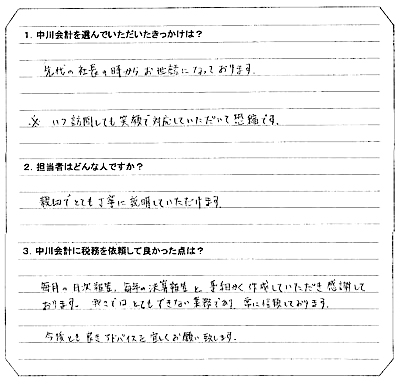 1. 中川会計を選んでいただいたきっかけは?
先代の社長の時からお世話になっております。
※ いつ訪問しても笑顔で対応していただいて恐縮です。
2. 担当者はどんな人ですか?
親切でとても丁寧に説明していただけます
3. 中川会計に税務を依頼して良かった点は?
毎月の月次報告、毎年の決算報告と事細かく作成していただき感謝して
おります。我々ではとてもできない業務であり、常に信頼しております。
今後とも良きアドバイスを宜しくお願い致します。